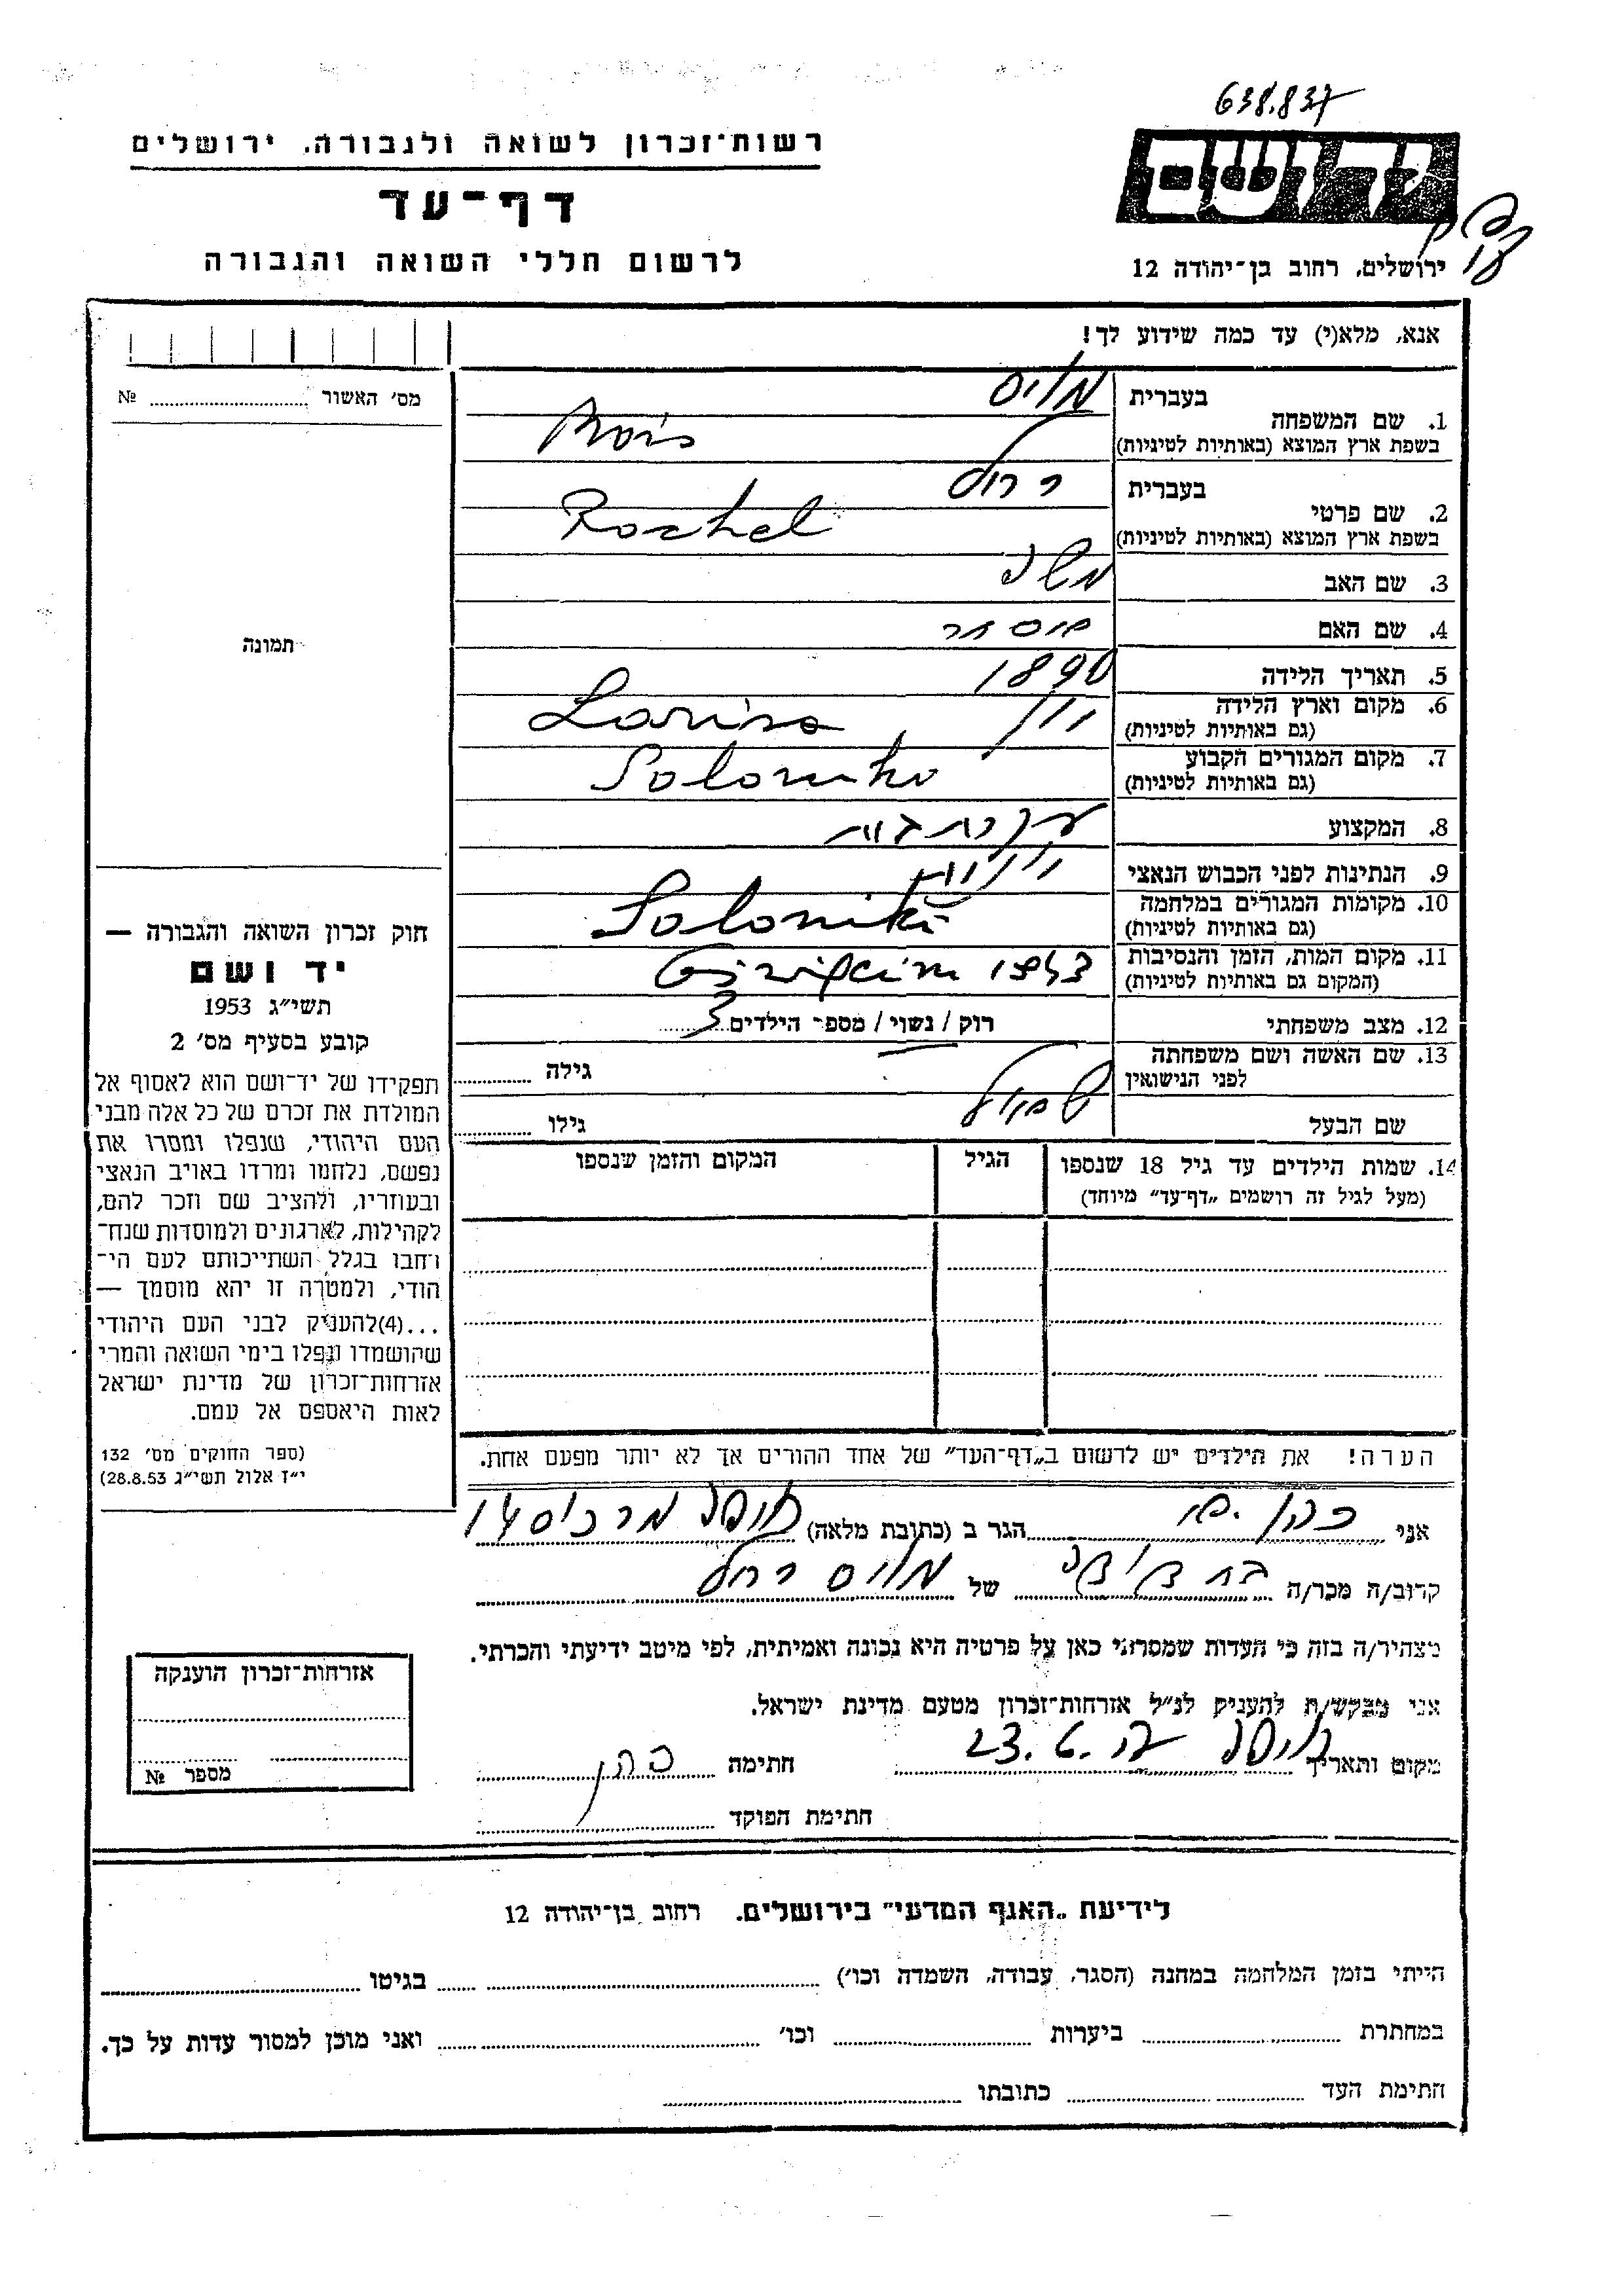 638.837
רשות־זכרון לשואה ולגבורה, ירושלים
דף־עד
לרשום חללי השואה והגבורה
ידושם
ירושלים, רחוב בן־יהודה 12
אנא, מלא(י) עד כמה שידוע לך!
מס' האשור № 
תמונה
1. שם המשפחה
בעברית
בשפת ארץ המוצא (באותיות לטיניות)
2. שם פרטי
בעברית רחל
בשפת ארץ המוצא (באותיות לטיניות) Rachel
3. שם האב משה
4. שם האם
5. תאריך הלידה 1890
6. מקום וארץ הלידה יוון Larisa
(גם באותיות לטיניות)
7. מקום המגורים הקבוע Saloniko
(גם באותיות לטיניות)
8. המקצוע עקרת בית
9. הנתינות לפני הכבוש הנאצי יוונית
10. מקומות המגורים במלחמה Saloniki
(גם באותיות לטיניות)
11. מקום המות, הזמן והנסיבות 1943
(המקום גם באותיות לטיניות)
12. מצב משפחתי רוק / נשוי / מספר הילדים 3
13. שם האשה ושם משפחתה גילה
לפני הנישואין
שם הבעל גילו
14. שמות הילדים עד גיל 18 שנספו הגיל המקום והזמן שנספו
(מעל לגיל זה רושמים „דף־עד" מיוחד)
הערה! את הילדים יש לרשום ב„דף־העד" של אחד ההורים אך לא יותר מפעם אחת.
חוק זכרון השואה והגבורה —
יד ושם
תשי״ג 1953
קובע בסעיף מס' 2
תפקידו של יד־ושם הוא לאסוף אל
המולדת את זכרם של כל אלה מבני
העם היהודי, שנפלו ומסרו את
נפשם, נלחמו ומרדו באויב הנאצי
ובעוזריו, ולהציב שם וזכר להם,
לקהילות, לארגונים ולמוסדות שנח־
רבו בגלל השתייכותם לעם הי־
הודי, ולמטרה זו יהא מוסמך —
...(4)להעניק לבני העם היהודי
שהושמדו ונפלו בימי השואה והמרי
אזרחות־זכרון של מדינת ישראל
לאות היאספם אל עמם.
(ספר החוקים מס' 132
י״ז אלול תשי״ג 28.8.53)
אני כהן הגר ב (כתובת מלאה) חיפה
קרוב/ה מכר/ה בת דודה של רחל
מצהיר/ה בזה כי העדות שמסרתי כאן על פרטיה היא נכונה ואמיתית, לפי מיטב ידיעתי והכרתי.
אני מבקש/ת להעניק לנ״ל אזרחות־זכרון מטעם מדינת ישראל.
מקום ותאריך חיפה 23.6. חתימה כהן
חתימת הפוקד
אזרחות־זכרון הוענקה
מספר №
לידיעת „האגף המדעי" בירושלים. רחוב בן־יהודה 12
הייתי בזמן המלחמה במחנה (הסגר, עבודה, השמדה וכו') בגיטו
במחתרת ביערות וכו' ואני מוכן למסור עדות על כך.
חתימת העד כתובתו